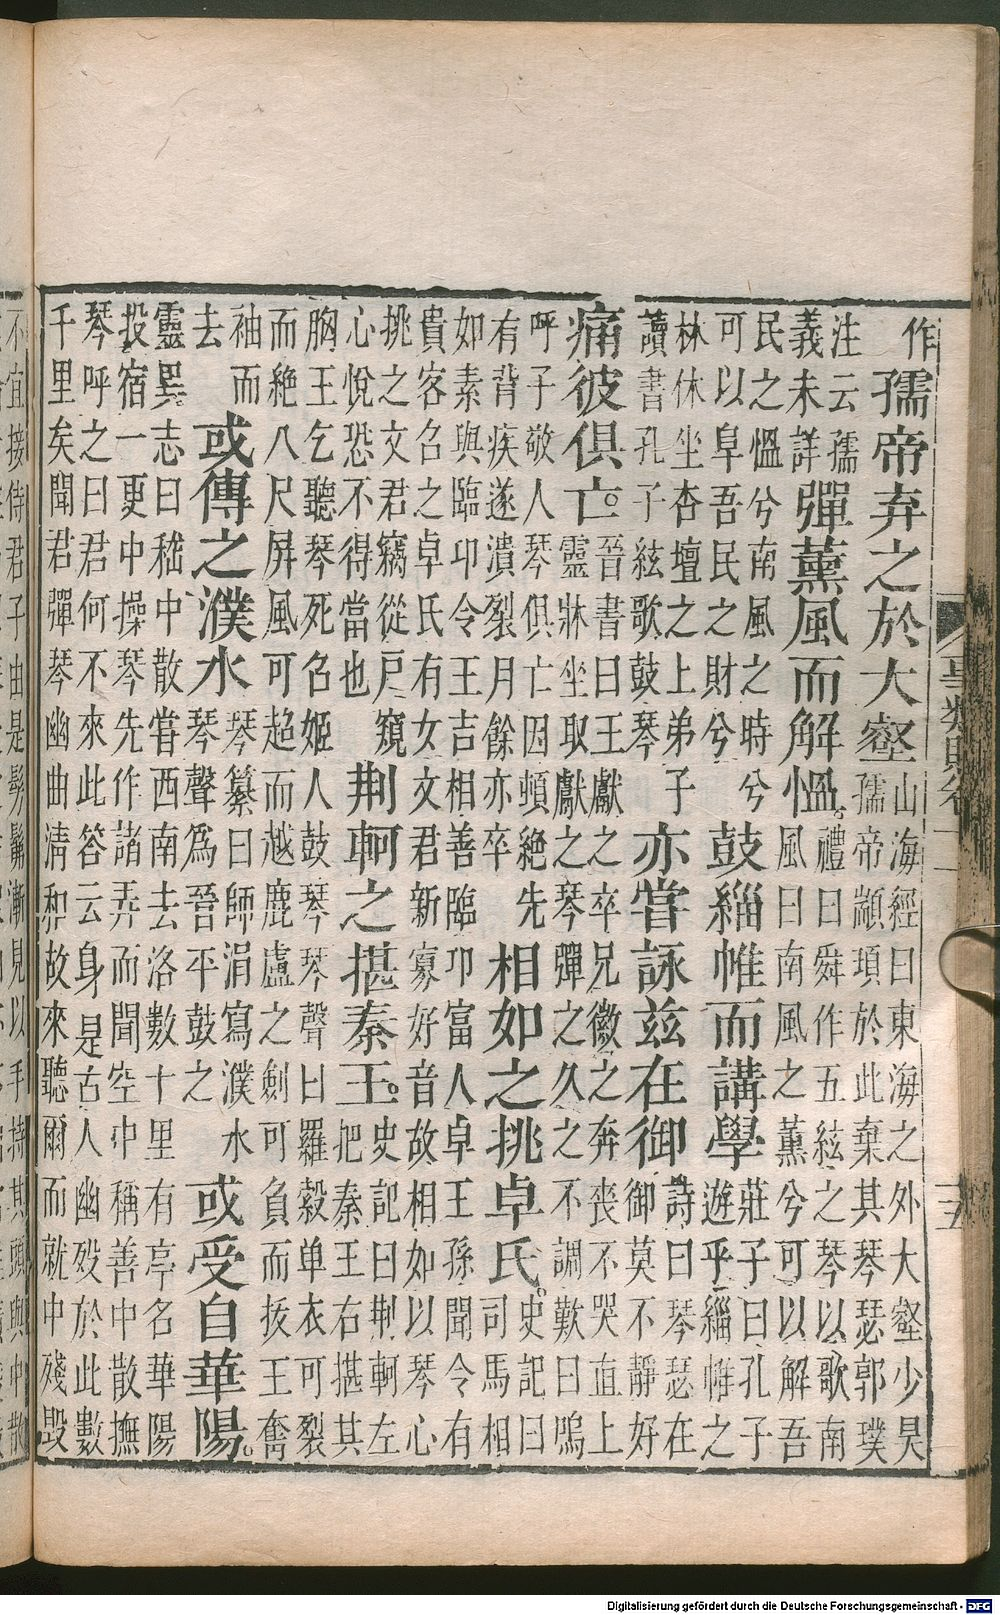 作孺帝弃之於大壑山海經曰東海之外大壑少昊
孺帝顓頊於此棄其琴瑟郭璞
注云孺
義未詳彈薰風而解慍。禮曰舜作五絃之琴以歌南
風曰南風之薰兮可以解吾
民之慍兮南風之時兮
可以阜吾民之財兮鼓緇帷而講學莊子曰孔子
遊乎緇帷之
林休坐杏壇之上弟子
讀書孔子絃歌鼓琴亦嘗詠茲在御詩曰琴瑟在
御莫不靜好
痛彼俱亡。晉書曰王獻之卒兄徽之奔喪不哭直上
靈牀坐取獻之琴彈之久之不調歎曰嗚
呼子敬人琴俱亡因頓絕先
有背疾遂潰裂月餘亦卒相如之挑卓氏。史記曰
司馬相
如素與臨卭令王吉相善臨卭富人卓王孫聞令有
貴客召之卓氏有女文君新寡好音故相如以琴心
挑之文君竊從戶窺
心悅恐不得當也荆軻之揕秦王。史記曰荆軻左
把秦王右揕其
胸王乞聽琴死召姬人鼓琴琴聲曰羅縠单衣可裂
而絕八尺屏風可超而越鹿盧之劍可負而拔王奮
袖而
去或傳之濮水琴纂曰師涓寫濮水
琴聲爲晉平鼓之或受自華陽。
靈異志曰嵇中散嘗西南去洛數十里有亭名華陽
投宿一更中操琴先作諸弄而聞空中稱善中散撫
琴呼之曰君何不來此答云身是古人幽殁於此數
千里矣聞君彈琴幽曲清和故來聽爾而就中殘毁
不宜接侍君子由是髣髴漸見以手持其頭與中散
Digitalisierung gefördert durch die Deutsche Forschungsgemeinschaft - DFG